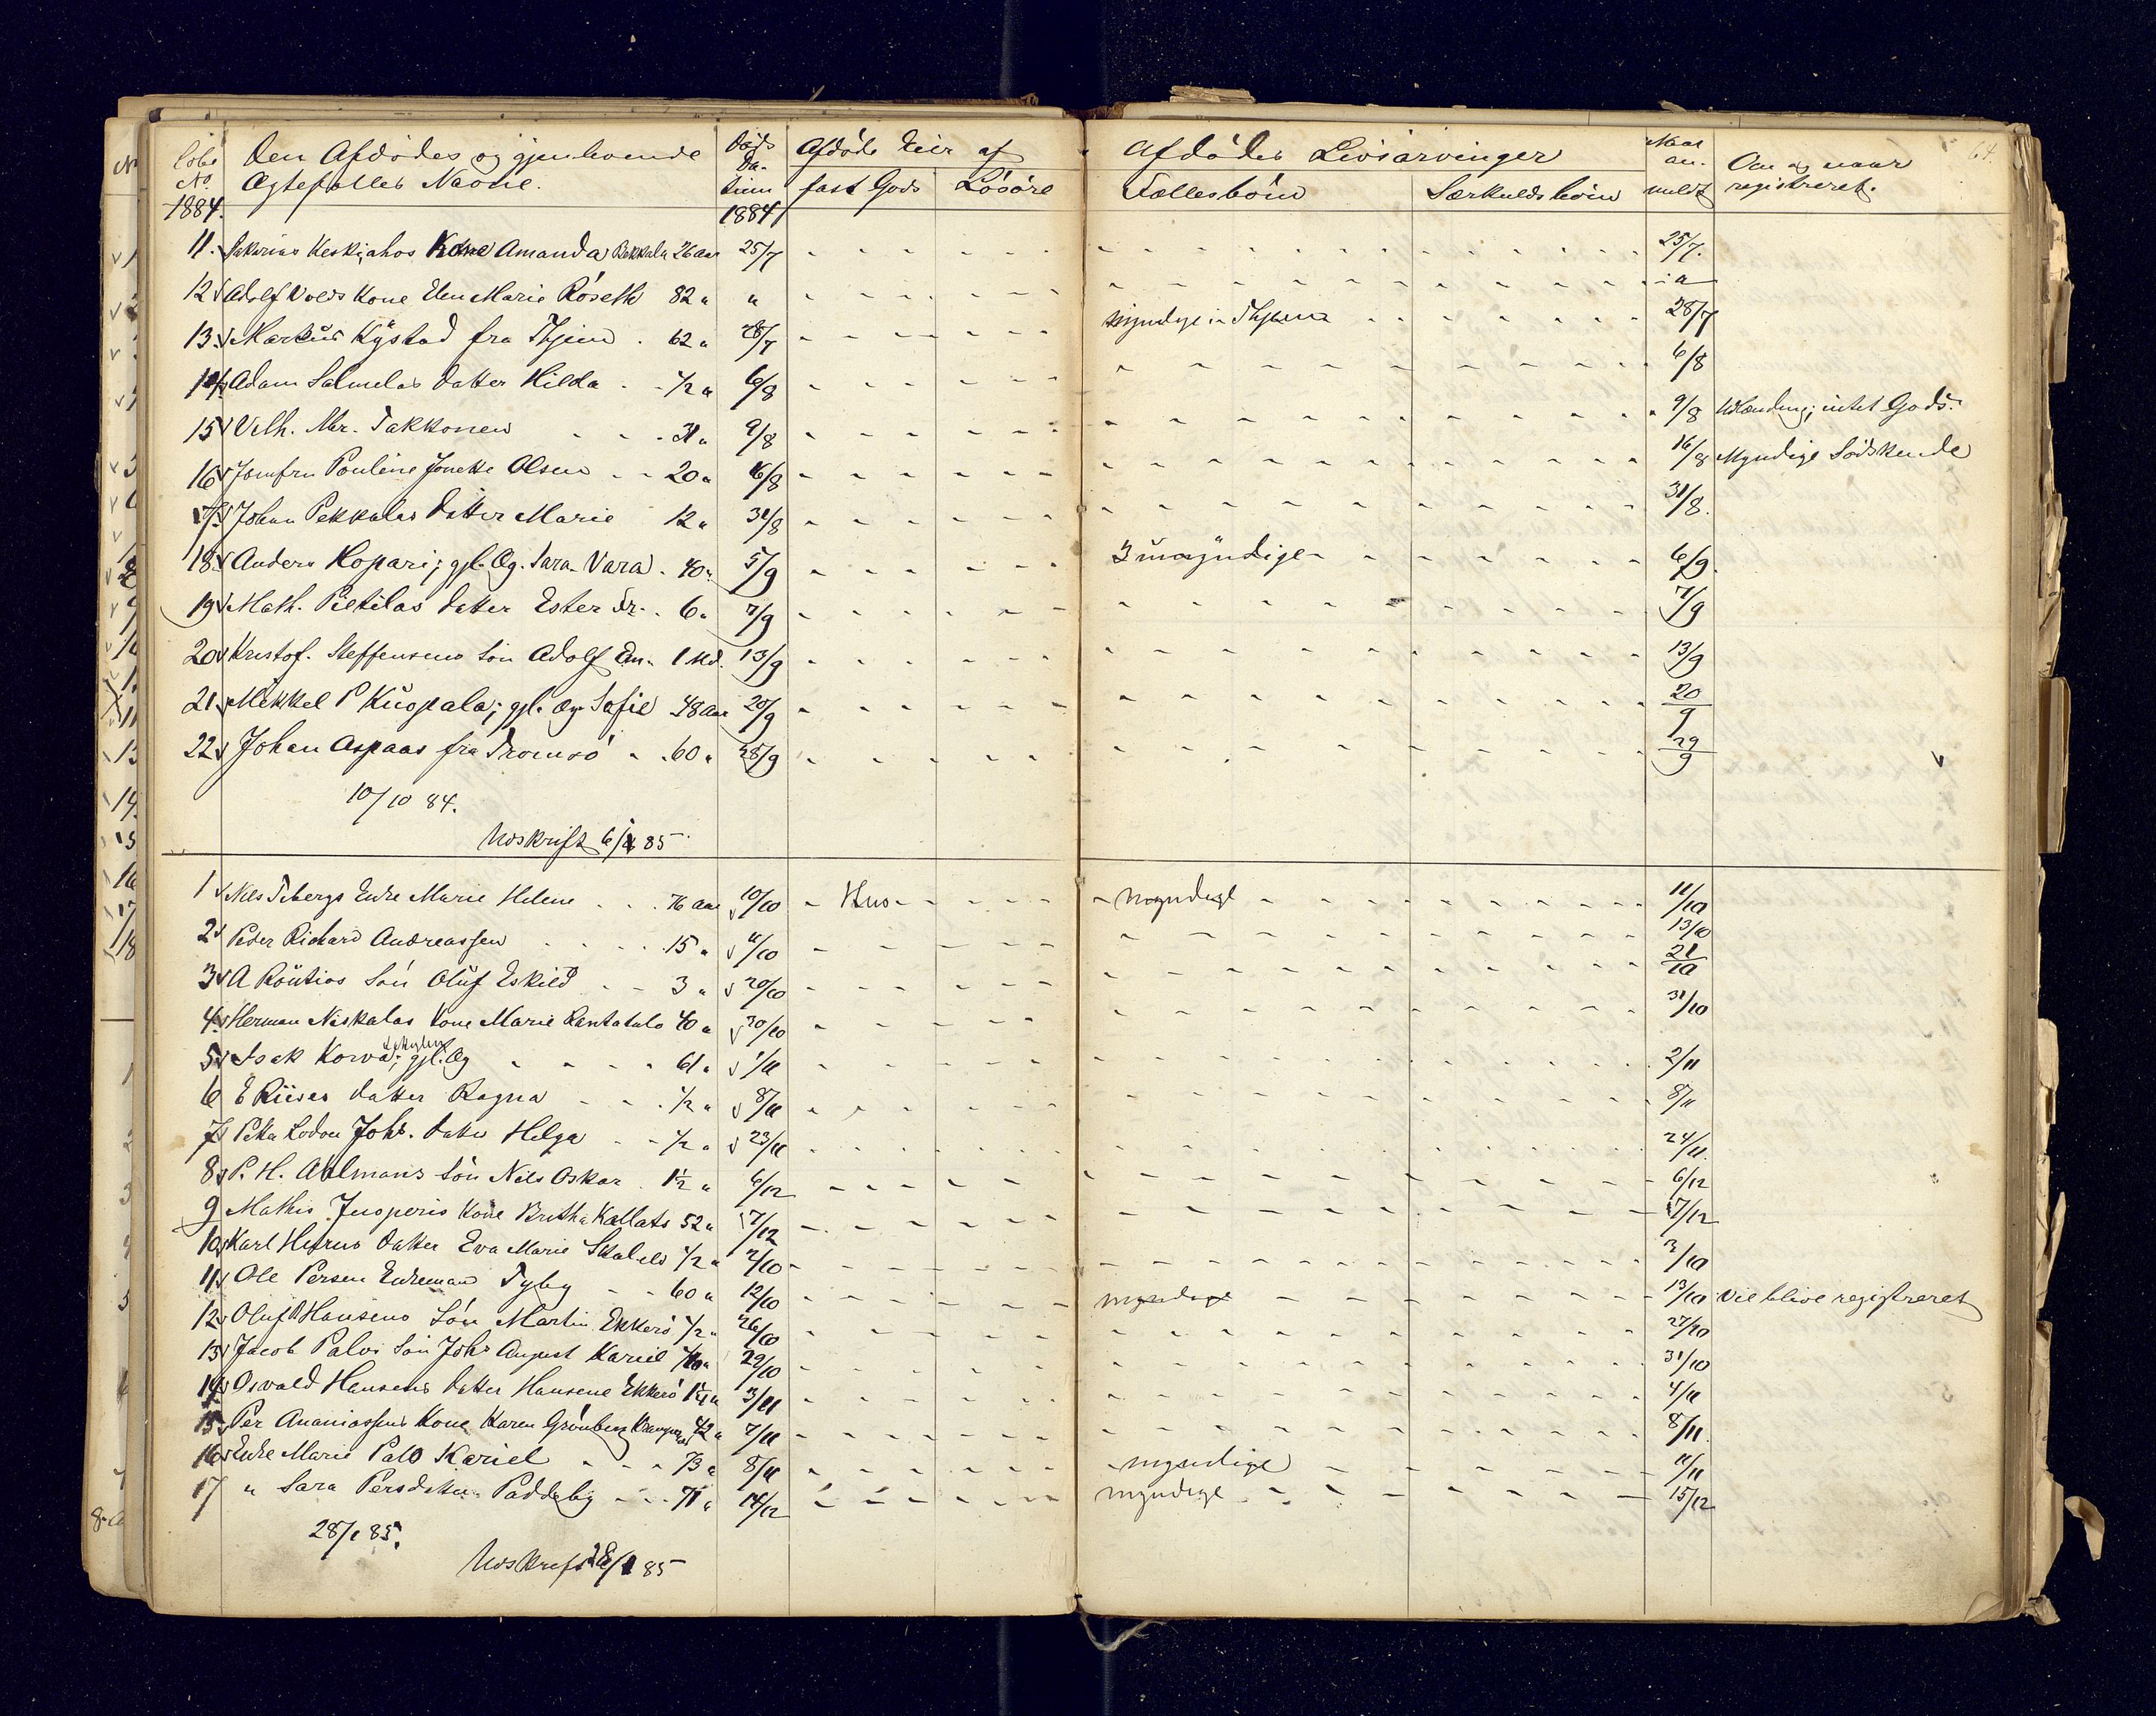 Løbe No. Den Afdødes og gjenlevende Ægtefælles Navne. Døds Datum Afdøde Eier af fast Gods Løsøre Afdødes Livsarvinger Fællesbørn Særkuldsbørn Naar anmeldt Om og naar registreret. 64.
1884. 1884
11. Sakarias Keskiahos Kone Amanda Pekkala 26 Aar 25/7 25/7.
12 Adolf Volds Kone Elen Marie Røseth 82 " " "
13. Markus Kystad fra Thjem 62 " 28/7 myndige i 28/7
14 Adam Salmelas Datter Hilda 1/2 " 6/8 6/8
15 Vilh. Mr. Takkonen 31 " 9/8 9/8 Udlænding; intet Gods.
16 Jomfru Pouline Jonette Olsen 20 " 16/8 16/8 Myndige Sødskende
17 Johan Pekkalas Datter Marie 12 " 31/8 31/8.
18 Anders Kopari; gjl. Æg. Sara Vara 40 " 5/9 3 umyndige 6/9.
19 Math. Pietilas Datter Ester Fr. 6 " 7/9 7/9
20 Kristof. Steffensens Søn Adolf Em. 1 Md. 13/9 13/9
21. Mikkel P Kuopala; gjl. Æg. Sofie 48 Aar 20/9 20/9
22 Johan Aspaas fra Tromsø 60 " 28/9 29/9
10/10 84.
Udskrift 6/1 85
1 Nils Tibergs Enke Marie Helene 76 Aar 10/10 Hus myndige 11/10
2 Peder Richard Andreassen 15 " 11/10 13/10
3 A Routios Søn Oluf Eskild 3 " 20/10 21/10
4. Herman Niskalas Kone Marie Rantatalo 40 " 30/10 31/10
5 Isak Korva; gjl. Æg 61 " 1/11 2/11
6 E Riises Datter Ragna 1/2 " 8/11 8/11
7 Petter Lodon Johs. Datter Helga 1/2 " 23/11 24/11.
8 P. H. Ahlmans Søn Nils Oskar 1 1/2 " 6/12 6/12
9 Mathis Jusoperis Kone Britha Kallats 52 " 7/12 7/12
10 Karl Datter Eva Marie 1/2 " 2/10 3/10
11 Ole Persen Enkemand Tyby 60 " 12/10 myndige 13/10 Vil blive registreret
12 Oluf Hansens Søn Martin Ekkerø 1/2 " 26/10 27/10
13 Jacob Palvi Søn Johs August Kariel 29/10 31/10
14 Osvald Hansens Datter Hansene Ekkerø 3/11 4/11
15 Per Ananiassens Kone Karen Grønberg 42 " 7/11 8/11.
16 Enke Marie Palo Kariel 73 " 8/11 myndige 11/11
17 " Sara Persdatter Paddeby 71 " 14/12 myndige 15/12
28/1 85.
Udskrift 28/1 85